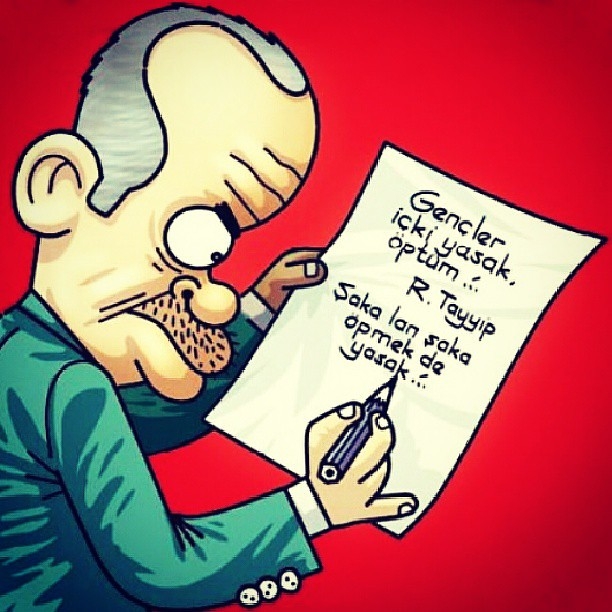 Gençler
içki yasak,
öptüm...
R. Tayyip
Şaka lan şaka
öpmek de
yasak...